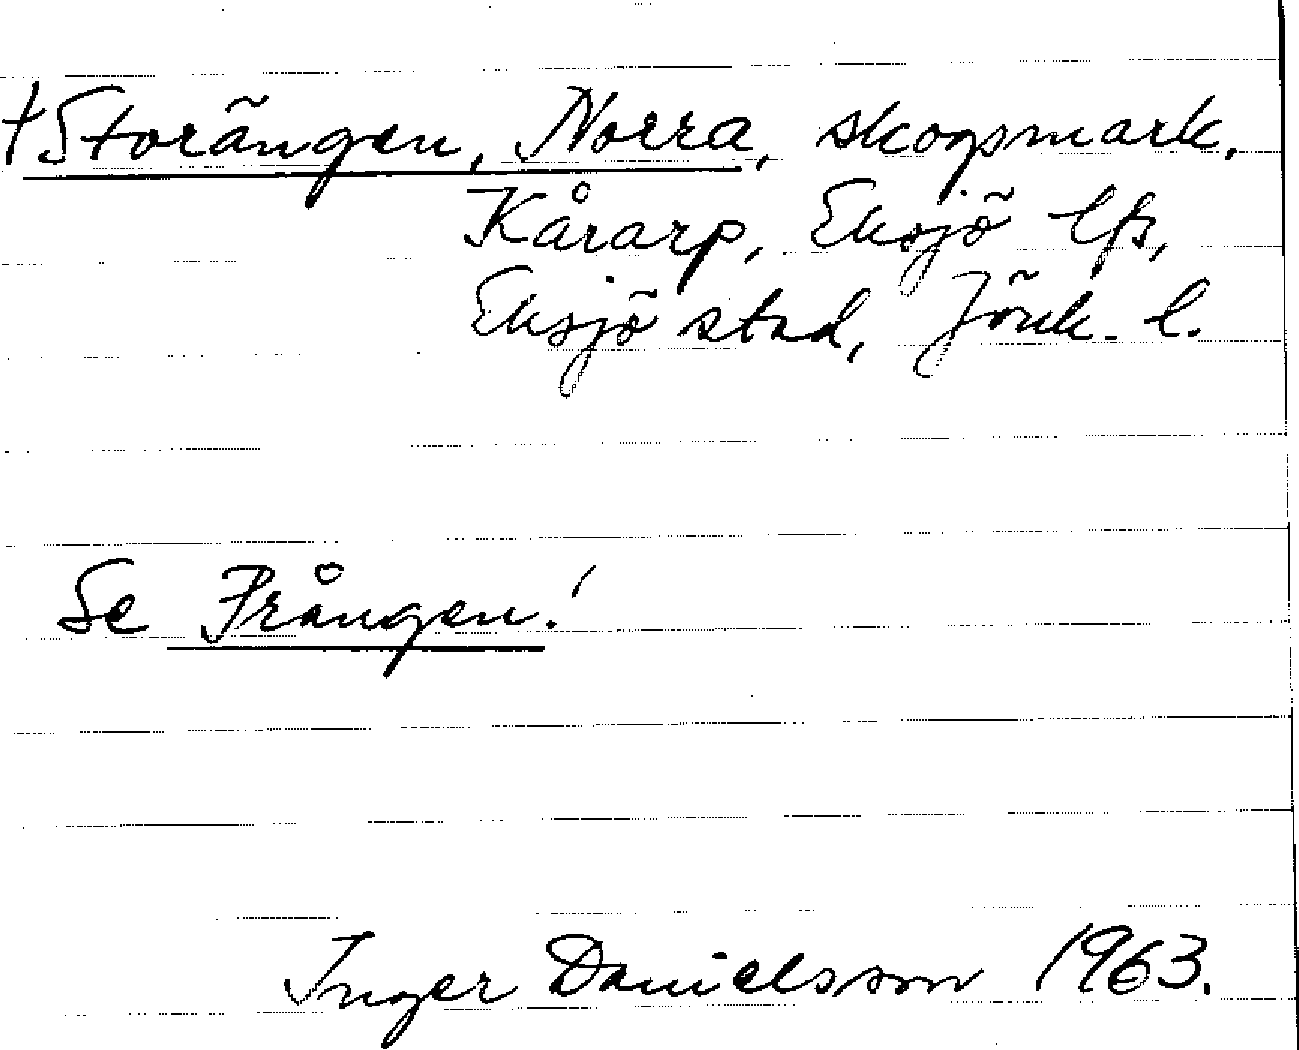 †Storängen, Norra, skogsmark,
Kårarp, Eksjö lfs,
Eksjö stad, Jönk. l.
Se Prången!
Inger Danielsson 1963.